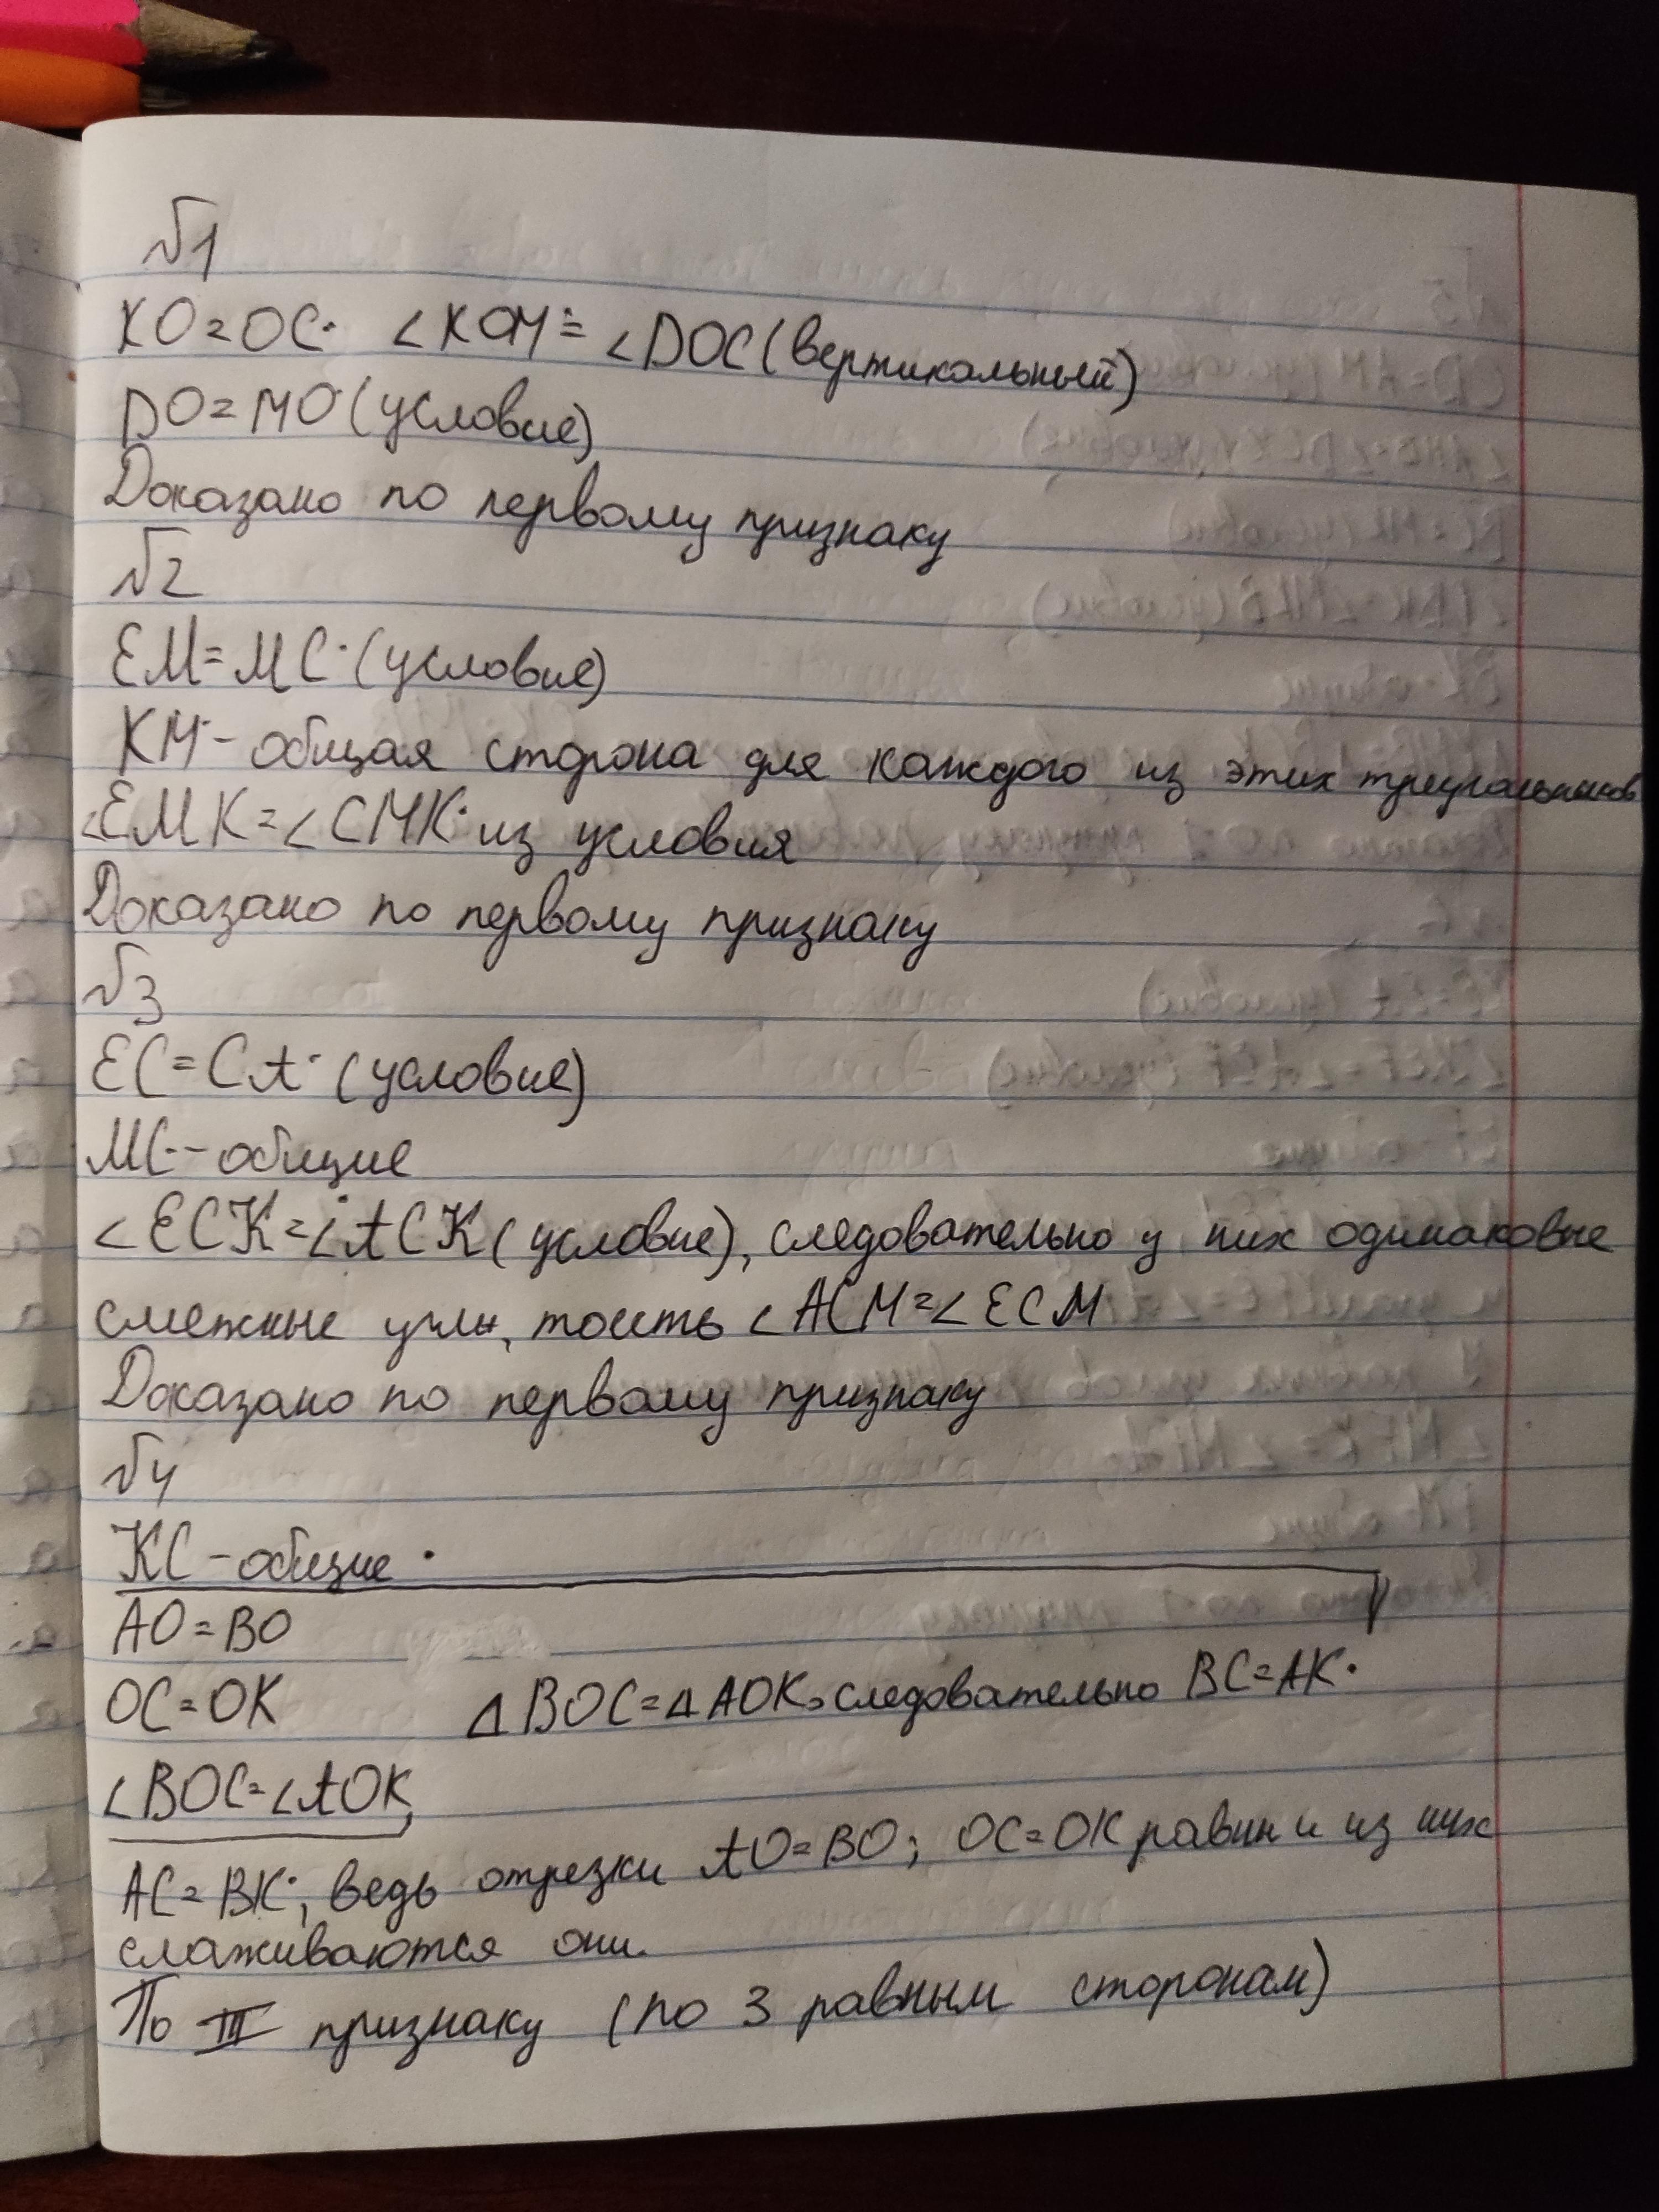 №1
KO=OC· ∠KOM=∠DOC(вертикальный)
DO=MO(условие)
Доказано по первому признаку
№2
EM=MC·(условие)
KM·- общая сторона для каждого из этих треугольников
∠EMK=∠CMK· из условия
Доказано по первому признаку
№3
EC=CA·(условие)
MC·-общие
∠ECK=∠ACK(условие), следовательно у них одинаковые
смежные углы, тоесть ∠ACM=∠ECM
Доказано по первому признаку
№4
KC-общие ·
AO=BO
OC=OK △BOC=△AOK, следовательно BC=AK·
∠BOC=∠AOK,
AC=BK·, ведь отрезки AO=BO; OC=OK равны и из них
слаживаются они.
По III признаку (по 3 равным сторонам)